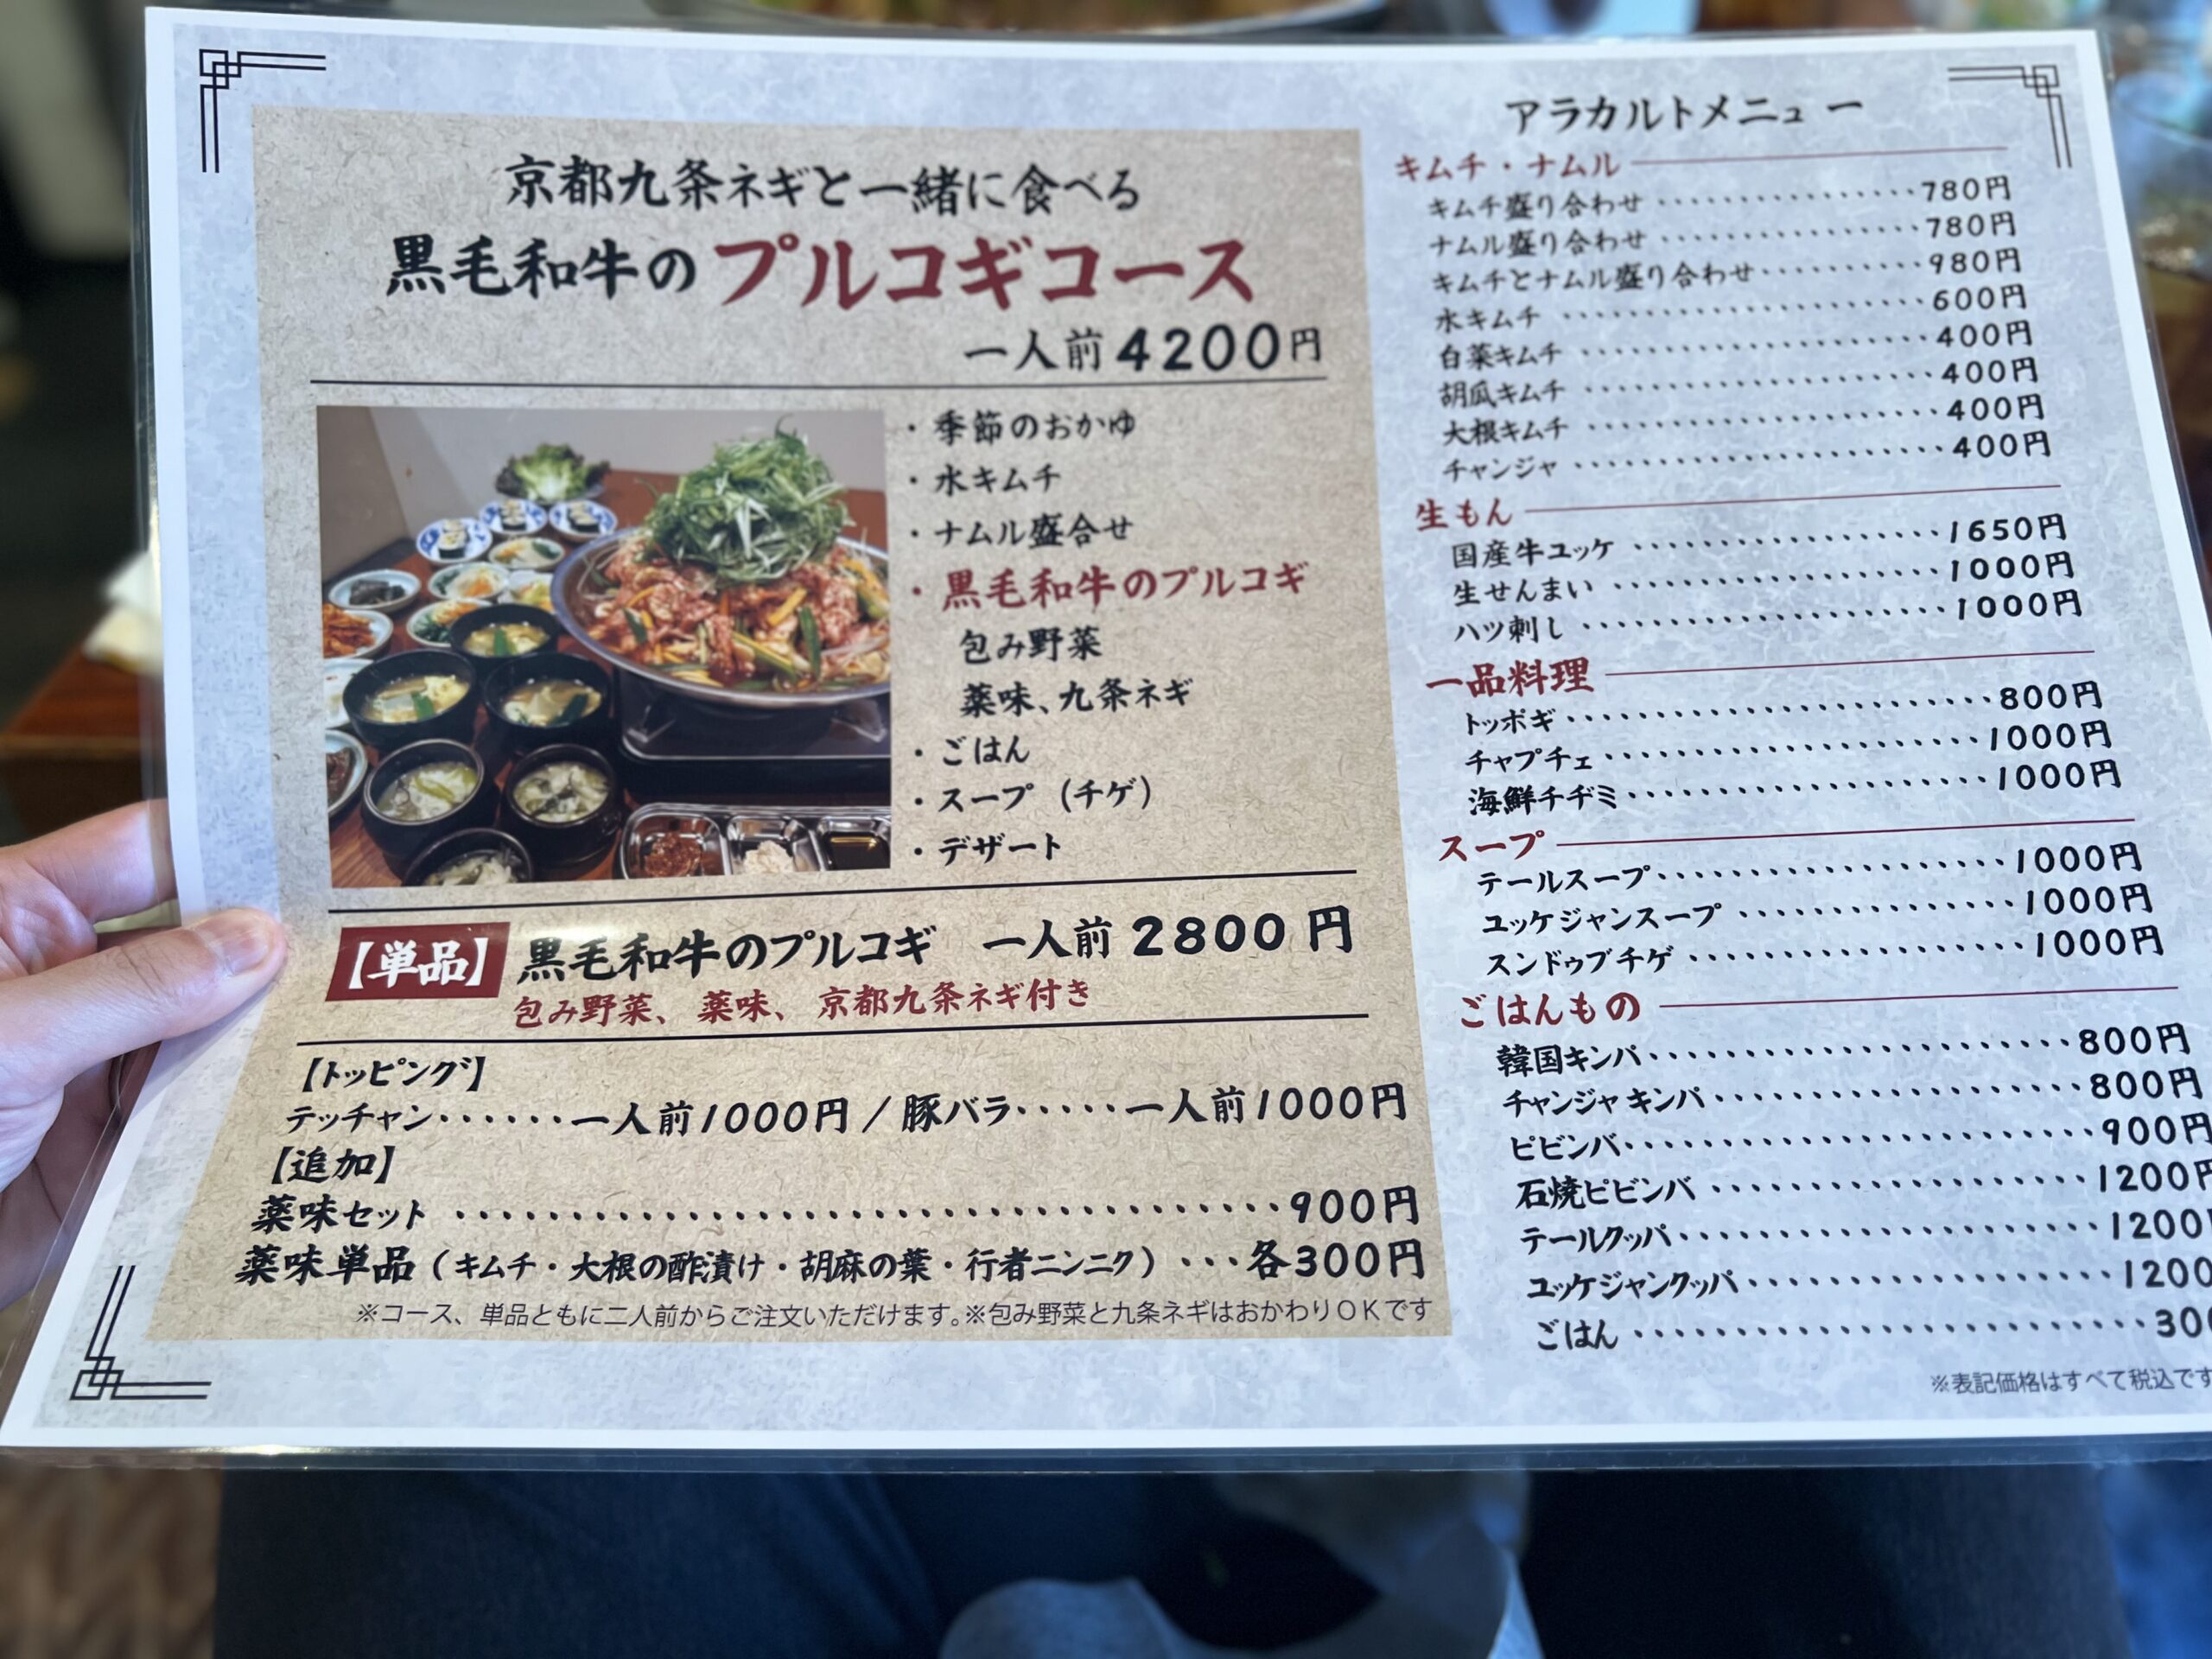 京都九条ネギと一緒に食べる
黒毛和牛のプルコギコース
一人前4200円
・季節のおかゆ
・水キムチ
・ナムル盛合せ
・黒毛和牛のプルコギ
包み野菜
薬味、九条ネギ
・ごはん
・スープ（チゲ）
・デザート
【単品】黒毛和牛のプルコギ 一人前 2800円
包み野菜、薬味、京都九条ネギ付き
【トッピング】
テッチャン・・・・・・一人前1000円／豚バラ・・・・・一人前1000円
【追加】
薬味セット・・・・・・・・・・900円
薬味単品（キムチ・大根の酢漬け・胡麻の葉・行者ニンニク）・・・各300円
※コース、単品ともに二人前からご注文いただけます。※包み野菜と九条ネギはおかわりＯＫです
アラカルトメニュー
キムチ・ナムル
キムチ盛り合わせ・・・・・・・・・・780円
ナムル盛り合わせ・・・・・・・・・・780円
キムチとナムル盛り合わせ・・・・・・・・・・980円
水キムチ・・・・・・・・・・600円
白菜キムチ・・・・・・・・・・400円
胡瓜キムチ・・・・・・・・・・400円
大根キムチ・・・・・・・・・・400円
チャンジャ・・・・・・・・・・400円
生もん
国産牛ユッケ・・・・・・・・・・1650円
生せんまい・・・・・・・・・・1000円
ハツ刺し・・・・・・・・・・1000円
一品料理
トッポギ・・・・・・・・・・800円
チャプチェ・・・・・・・・・・1000円
海鮮チヂミ・・・・・・・・・・1000円
スープ
テールスープ・・・・・・・・・・1000円
ユッケジャンスープ・・・・・・・・・・1000円
スンドゥブチゲ・・・・・・・・・・1000円
ごはんもの
韓国キンパ・・・・・・・・・・800円
チャンジャキンパ・・・・・・・・・・800円
ピビンバ・・・・・・・・・・900円
石焼ピビンバ・・・・・・・・・・1200円
テールクッパ・・・・・・・・・・1200
ユッケジャンクッパ・・・・・・・・・・1200
ごはん・・・・・・・・・・30
※表記価格はすべて税込です